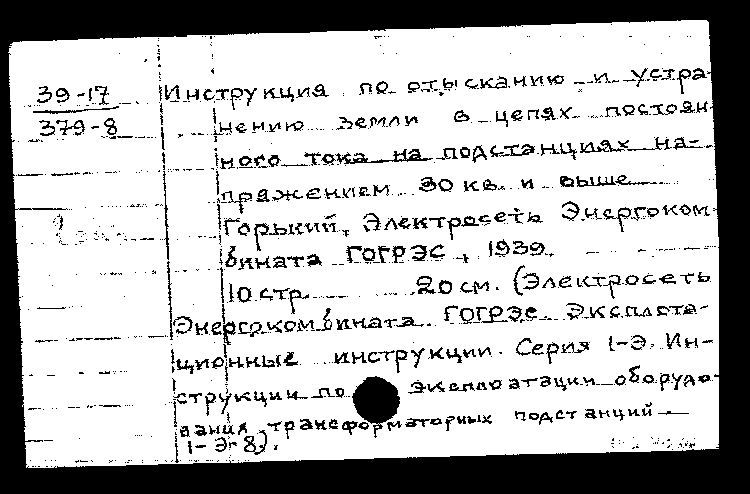 39-17
379-8
Инструкция по отысканию и устра-
нению земли в цепях постоян
ного тока на подстанциях на-
пряжением 30 кв. и выше
Горький, Электросеть Энергоком-
бината ГОГРЭС, 1939.
10 стр. 20 см. (Электросеть
Энергокомбината ГОГРЭС. Эксплота-
ционные инструкции. Серия I-Э. Ин-
струкции по эксплоатации оборудо-
вания трансформаторных подстанций
I-Э-8).